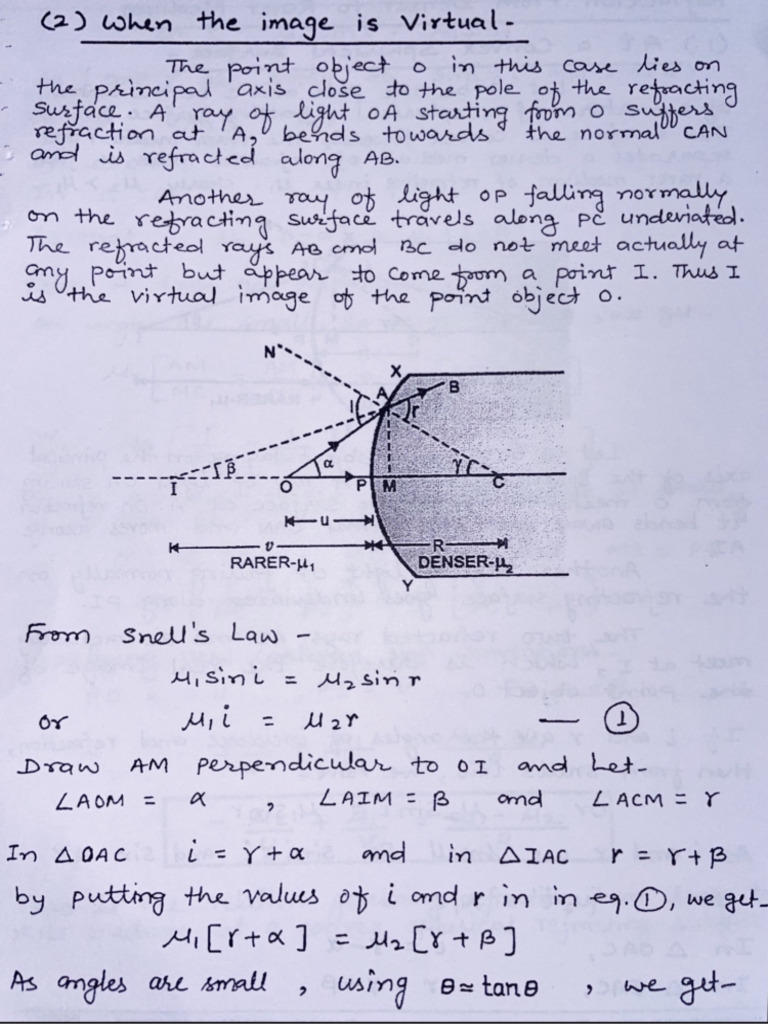 (2) When the image is Virtual -
The point object O in this case lies on
the principal axis close to the pole of the refracting
surface. A ray of light OA starting from O suffers
refraction at A, bends towards the normal CAN
and is refracted along AB.
Another ray of light OP falling normally
on the refracting surface travels along PC undeviated.
The refracted rays AB and BC do not meet actually at
any point but appear to come from a point I. Thus I
is the virtual image of the point object O.
N
X
A
B
i
r
β
α
γ
I
O
P
M
C
u
v
R
RARER-μ₁
DENSER-μ₂
Y
From Snell's Law -
μ₁ sin i = μ₂ sin r
or μ₁ i = μ₂ r — ①
Draw AM perpendicular to OI and Let-
∠AOM = α , ∠AIM = β and ∠ACM = γ
In △OAC i = γ + α and in △IAC r = γ + β
by putting the values of i and r in in eq. ①, we get-
μ₁[γ + α] = μ₂[γ + β]
As angles are small , using θ ≃ tan θ , we get-